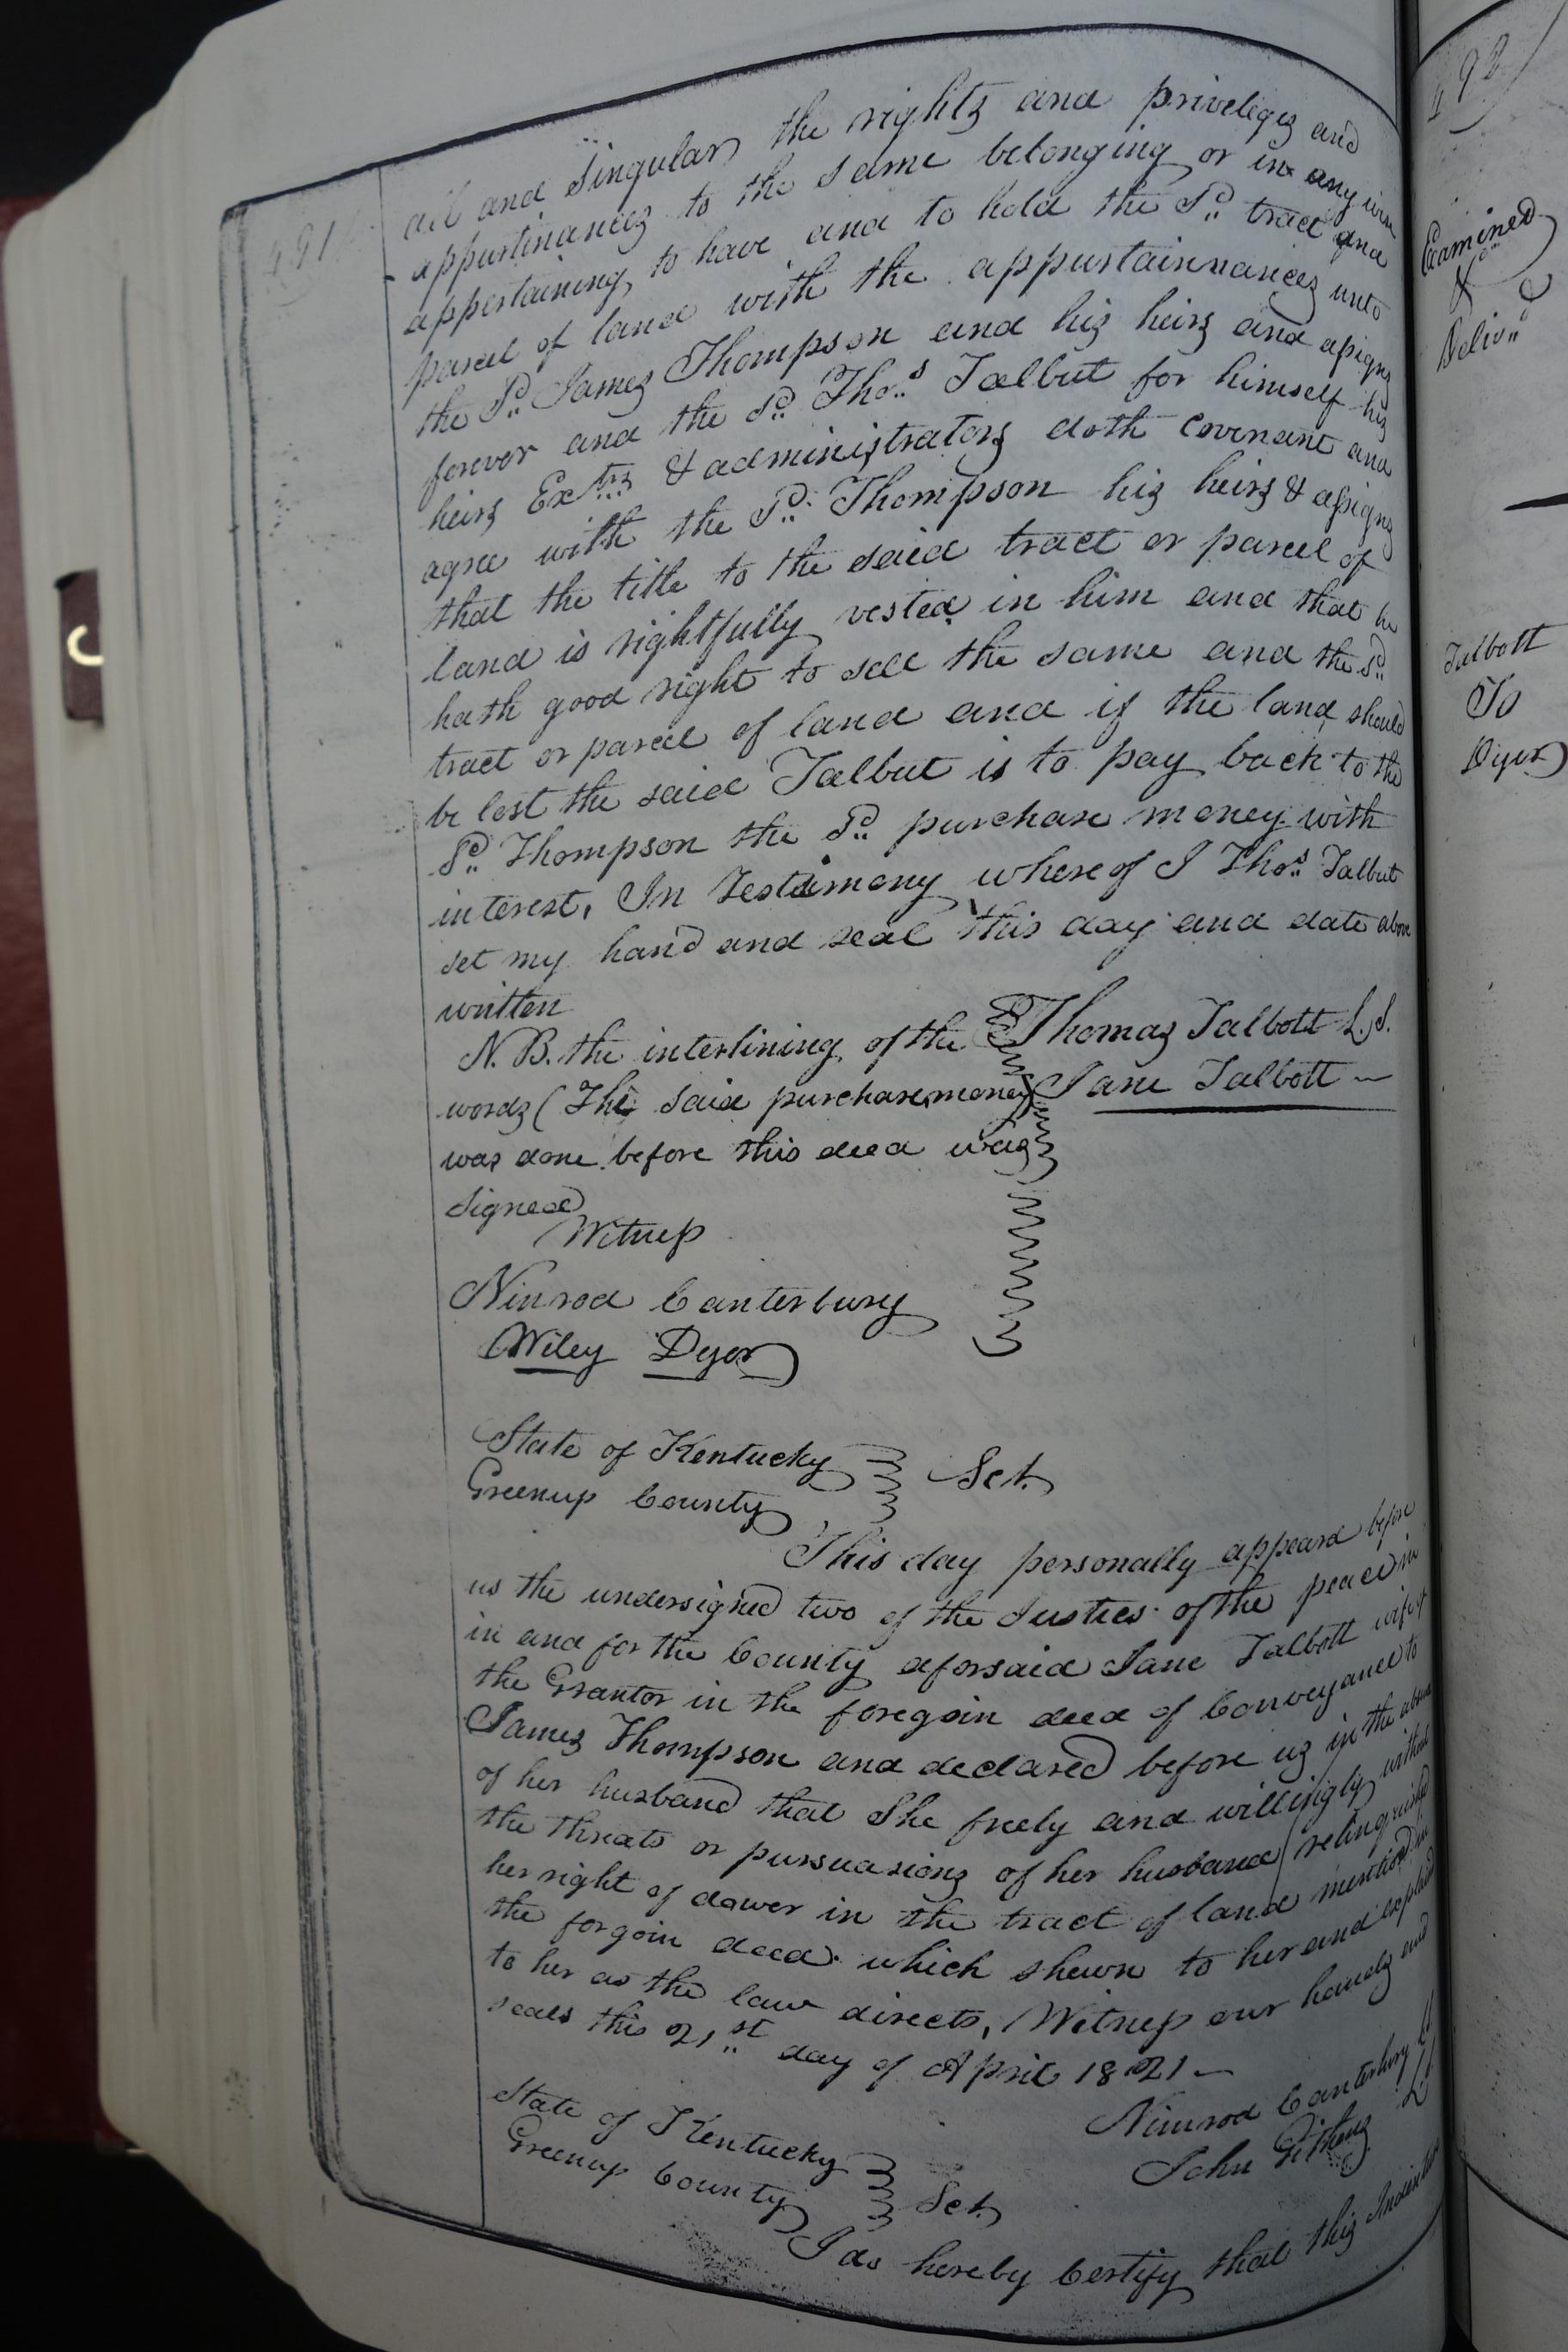 491
all and Singular the rights and priveliges and
appurtinances to the same belonging or in any wise
appertaining, to have and to hold the Sd. tract and
parcel of land with the appurtainnances unto
the Sd. James Thompson and his heirs and assigns
forever and the sd. Thos. Talbut for himself his
heirs Extrs & administrators doth covenant and
agree with the Sd. Thompson his heirs & assigns
that the title to the said tract or parcel of
land is rightfully vested in him and that he
hath good right to sell the same and the sd.
tract or parcel of land and if the land should
be lost the said Talbut is to pay back to the
Sd. Thompson the Sd. purchase money with
interest, In Testimony whereof I Thos. Talbut
set my hand and seal this day and date above
written
N.B. the interlining of the
words (The said purchase money)
was done before this deed was
signed
Thomas Talbott L.S.
Jane Talbott
Witness
Nimrod Canterbury
Wiley Dyer
State of Kentucky
Greenup County
Sct.
This day personally appeard before
us the undersigned two of the Justices of the peace in
in and for the County aforsaid Jane Talbott wife of
the Grantor in the foregoin deed of Conveyance to
James Thompson and declared before us in the absence
of her husband that She freely and willingly without
the threats or pursuasions of her husband relinquished
her right of dower in the tract of land mentiond in
the forgoin deed which shewn to her and explaind
to her as the law directs, Witness our hands and
seals this 21st day of April 1821
Nimrod Canterbury LS
John
State of Kentucky
Greenup County
Sct.
I do hereby Certify that this Indenture
492
Examined
&
Delivd
Talbott
To
Dyer